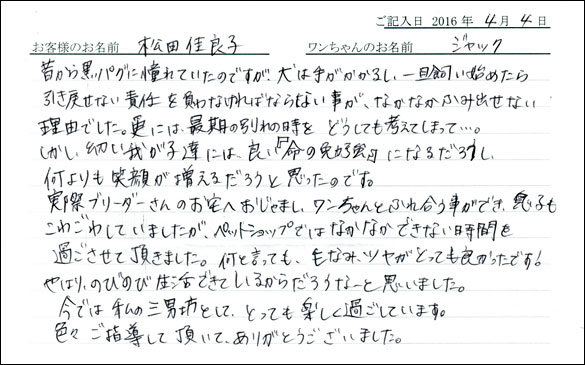 ご記入日 2016 年 4 月 4 日
お客様のお名前 松田佳良子 ワンちゃんのお名前 ジャック
昔から黒パグに憧れていたのですが、犬は手がかかるし、一旦飼い始めたら
引き戻せない責任を負わなければならない事が、なかなかふみ出せない
理由でした。更には、最期の別れの時をどうしても考えてしまって…。
しかし、幼い我が子達には、良い「命の勉強」になるだろうし、
何よりも笑顔が増えるだろうと思ったのです。
実際ブリーダーさんのお宅へおじゃまし、ワンちゃんとふれ合う事ができ、息子も
こわごわしていましたが、ペットショップではなかなかできない時間を
過ごさせて頂きました。何と言っても、毛なみ、ツヤがとっても良かったです!
やはり、のびのび生活できているからだろうなーと思いました。
今では私の三男坊として、とっても楽しく過ごしています。
色々ご指導して頂いて、ありがとうございました。